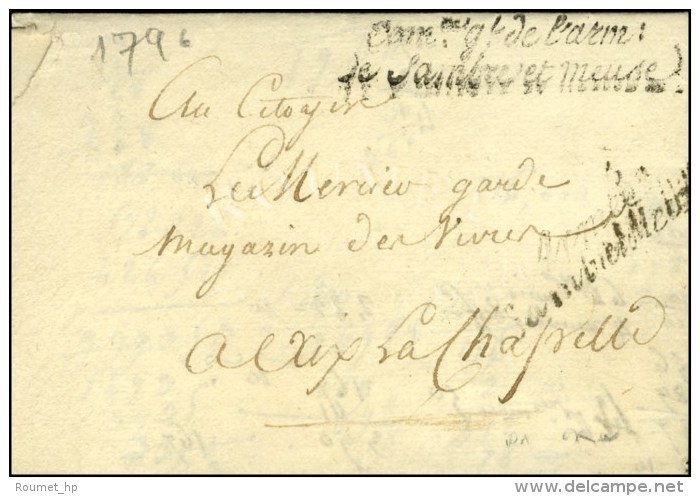 1796
Com.re g.l de l'arm:
de Sambre et Meuse
Au Citoyen
Le Mercier garde
Magazin des Vivres
a Aix La Chapelle
Sambre et Meuse
Roumet_hp
delcampe.net